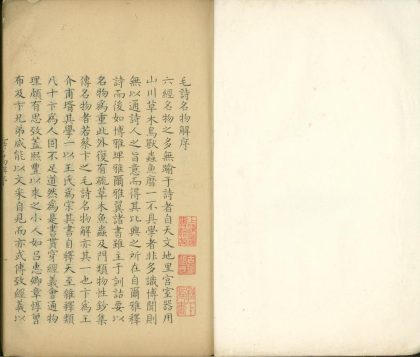 毛詩名物解序
六經名物之多無喻于詩者自天文地里宮室器用
山川草木鳥獸蟲魚靡一不具學者非多識博聞則
無以通詩人之旨意而得其比興之所在自爾雅釋
詩而後如博雅埤雅爾雅翼諸書雖主于訓詁要以
名物為重此外復有疏草木鳥蟲魚及門類物性鈔集
傳名物者若蔡卞之毛詩名物解亦其一也卞為王
介甫壻其學一以王氏為宗其書自釋天至雜釋類
凡十卞為人固不足道然為是書貫穿經義會通物
理頗有思致蓋熙豐以來之小人如呂惠卿章惇曾
布及卞兄弟咸能以文采自見而亦式傳致經義以